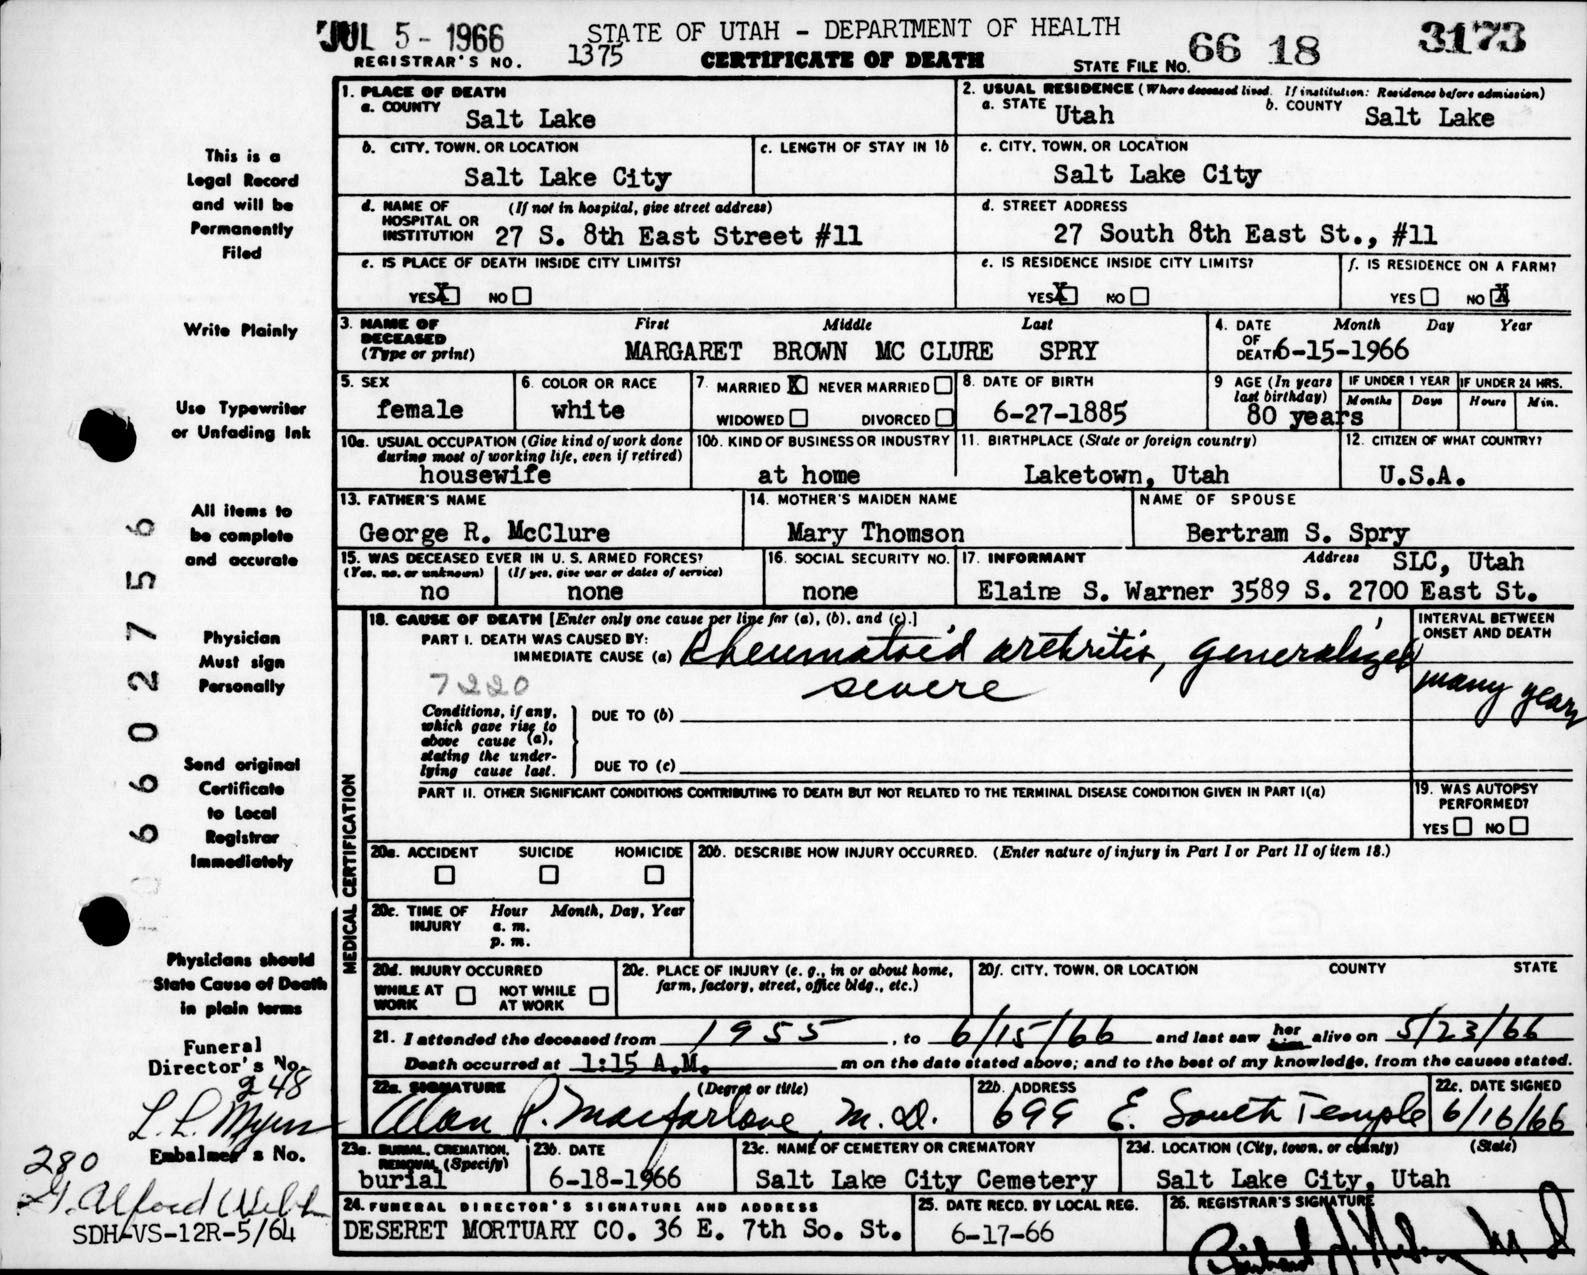 JUL 5 - 1966 STATE OF UTAH - DEPARTMENT OF HEALTH 3173
REGISTRAR'S NO. 1375 CERTIFICATE OF DEATH STATE FILE NO. 66 18
This is a
Legal Record
and will be
Permanently
Filed
Write Plainly
Use Typewriter
or Unfading Ink
All items to
be complete
and accurate
Physician
Must sign
Personally
Send original
Certificate
to Local
Registrar
Immediately
Physicians should
State Cause of Death
in plain terms
Funeral
Director's No.
248
L. L. Myers
Embalmer's No.
280
SDH-VS-12R-5/64
66027756
1. PLACE OF DEATH
a. COUNTY Salt Lake
2. USUAL RESIDENCE (Where deceased lived. If institution: Residence before admission)
a. STATE Utah b. COUNTY Salt Lake
b. CITY, TOWN, OR LOCATION
Salt Lake City
c. LENGTH OF STAY IN 1b
c. CITY, TOWN, OR LOCATION
Salt Lake City
d. NAME OF HOSPITAL OR INSTITUTION (If not in hospital, give street address)
27 S. 8th East Street #11
d. STREET ADDRESS
27 South 8th East St., #11
e. IS PLACE OF DEATH INSIDE CITY LIMITS?
YES X NO
e. IS RESIDENCE INSIDE CITY LIMITS?
YES X NO
f. IS RESIDENCE ON A FARM?
YES NO X
3. NAME OF DECEASED (Type or print) First Middle Last
MARGARET BROWN MC CLURE SPRY
4. DATE OF DEATH Month Day Year
6-15-1966
5. SEX
female
6. COLOR OR RACE
white
7. MARRIED X NEVER MARRIED
WIDOWED DIVORCED
8. DATE OF BIRTH
6-27-1885
9 AGE (In years last birthday)
80 years
IF UNDER 1 YEAR
Months Days
IF UNDER 24 HRS.
Hours Min.
10a. USUAL OCCUPATION (Give kind of work done during most of working life, even if retired)
housewife
10b. KIND OF BUSINESS OR INDUSTRY
at home
11. BIRTHPLACE (State or foreign country)
Laketown, Utah
12. CITIZEN OF WHAT COUNTRY?
U.S.A.
13. FATHER'S NAME
George R. McClure
14. MOTHER'S MAIDEN NAME
Mary Thomson
NAME OF SPOUSE
Bertram S. Spry
15. WAS DECEASED EVER IN U. S. ARMED FORCES?
(Yes, no, or unknown) (If yes, give war or dates of service)
no none
16. SOCIAL SECURITY NO.
none
17. INFORMANT Address SLC, Utah
Elaine S. Warner 3589 S. 2700 East St.
MEDICAL CERTIFICATION
18. CAUSE OF DEATH [Enter only one cause per line for (a), (b), and (c).]
PART I. DEATH WAS CAUSED BY:
IMMEDIATE CAUSE (a) Rheumatoid arthritis, generalized
severe
7220
INTERVAL BETWEEN ONSET AND DEATH
many years
Conditions, if any, which gave rise to above cause (a), stating the underlying cause last.
DUE TO (b)
DUE TO (c)
PART II. OTHER SIGNIFICANT CONDITIONS CONTRIBUTING TO DEATH BUT NOT RELATED TO THE TERMINAL DISEASE CONDITION GIVEN IN PART I(a)
19. WAS AUTOPSY PERFORMED?
YES NO
20a. ACCIDENT SUICIDE HOMICIDE
20b. DESCRIBE HOW INJURY OCCURRED. (Enter nature of injury in Part I or Part II of item 18.)
20c. TIME OF INJURY Hour Month, Day, Year
a. m.
p. m.
20d. INJURY OCCURRED
WHILE AT WORK NOT WHILE AT WORK
20e. PLACE OF INJURY (e. g., in or about home, farm, factory, street, office bldg., etc.)
20f. CITY, TOWN, OR LOCATION COUNTY STATE
21. I attended the deceased from 1955, to 6/15/66 and last saw her him alive on 5/23/66
Death occurred at 1:15 A.M. m on the date stated above; and to the best of my knowledge, from the causes stated.
22a. SIGNATURE (Degree or title)
Alan P. Macfarlane, M.D.
22b. ADDRESS
699 E. South Temple
22c. DATE SIGNED
6/16/66
23a. BURIAL, CREMATION, REMOVAL (Specify)
burial
23b. DATE
6-18-1966
23c. NAME OF CEMETERY OR CREMATORY
Salt Lake City Cemetery
23d. LOCATION (City, town, or county) (State)
Salt Lake City, Utah
24. FUNERAL DIRECTOR'S SIGNATURE AND ADDRESS
DESERET MORTUARY CO. 36 E. 7th So. St.
25. DATE RECD. BY LOCAL REG.
6-17-66
26. REGISTRAR'S SIGNATURE